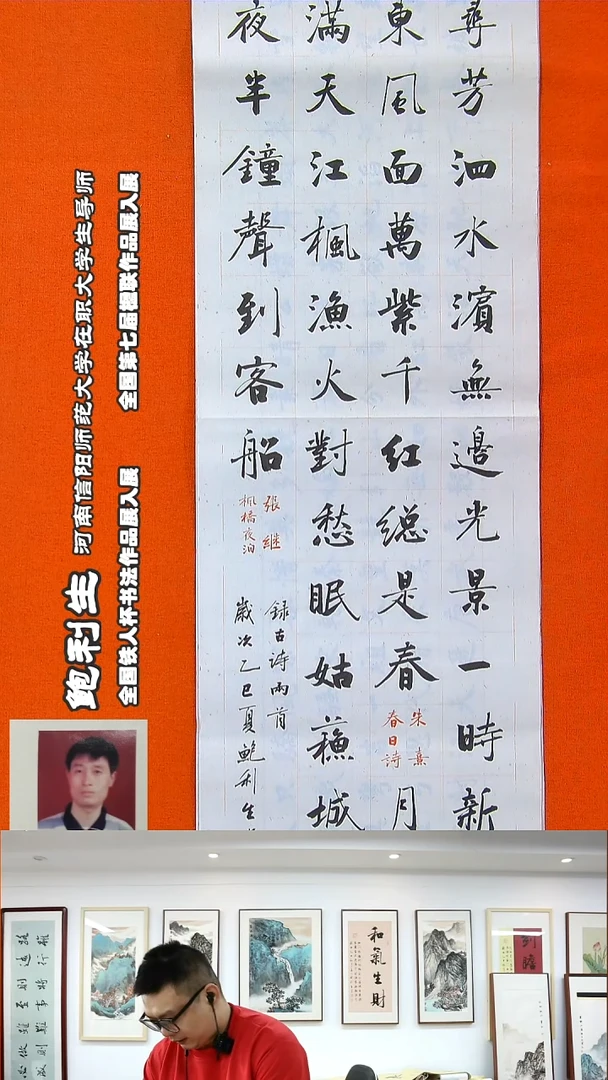 尋芳泗水濱無邊光景一時新
東風面萬紫千紅總是春
朱熹
春日詩
月
滿天江楓漁火對愁眠姑蘓城
夜半鐘聲到客船
張继
楓橋夜泊
録古诗兩首
歲次乙巳夏鮑利生
鲍利生 河南信阳师范大学在职大学生导师
全国铁人杯书法作品展入展 全国第七届楹联作品展入展
和氣生財